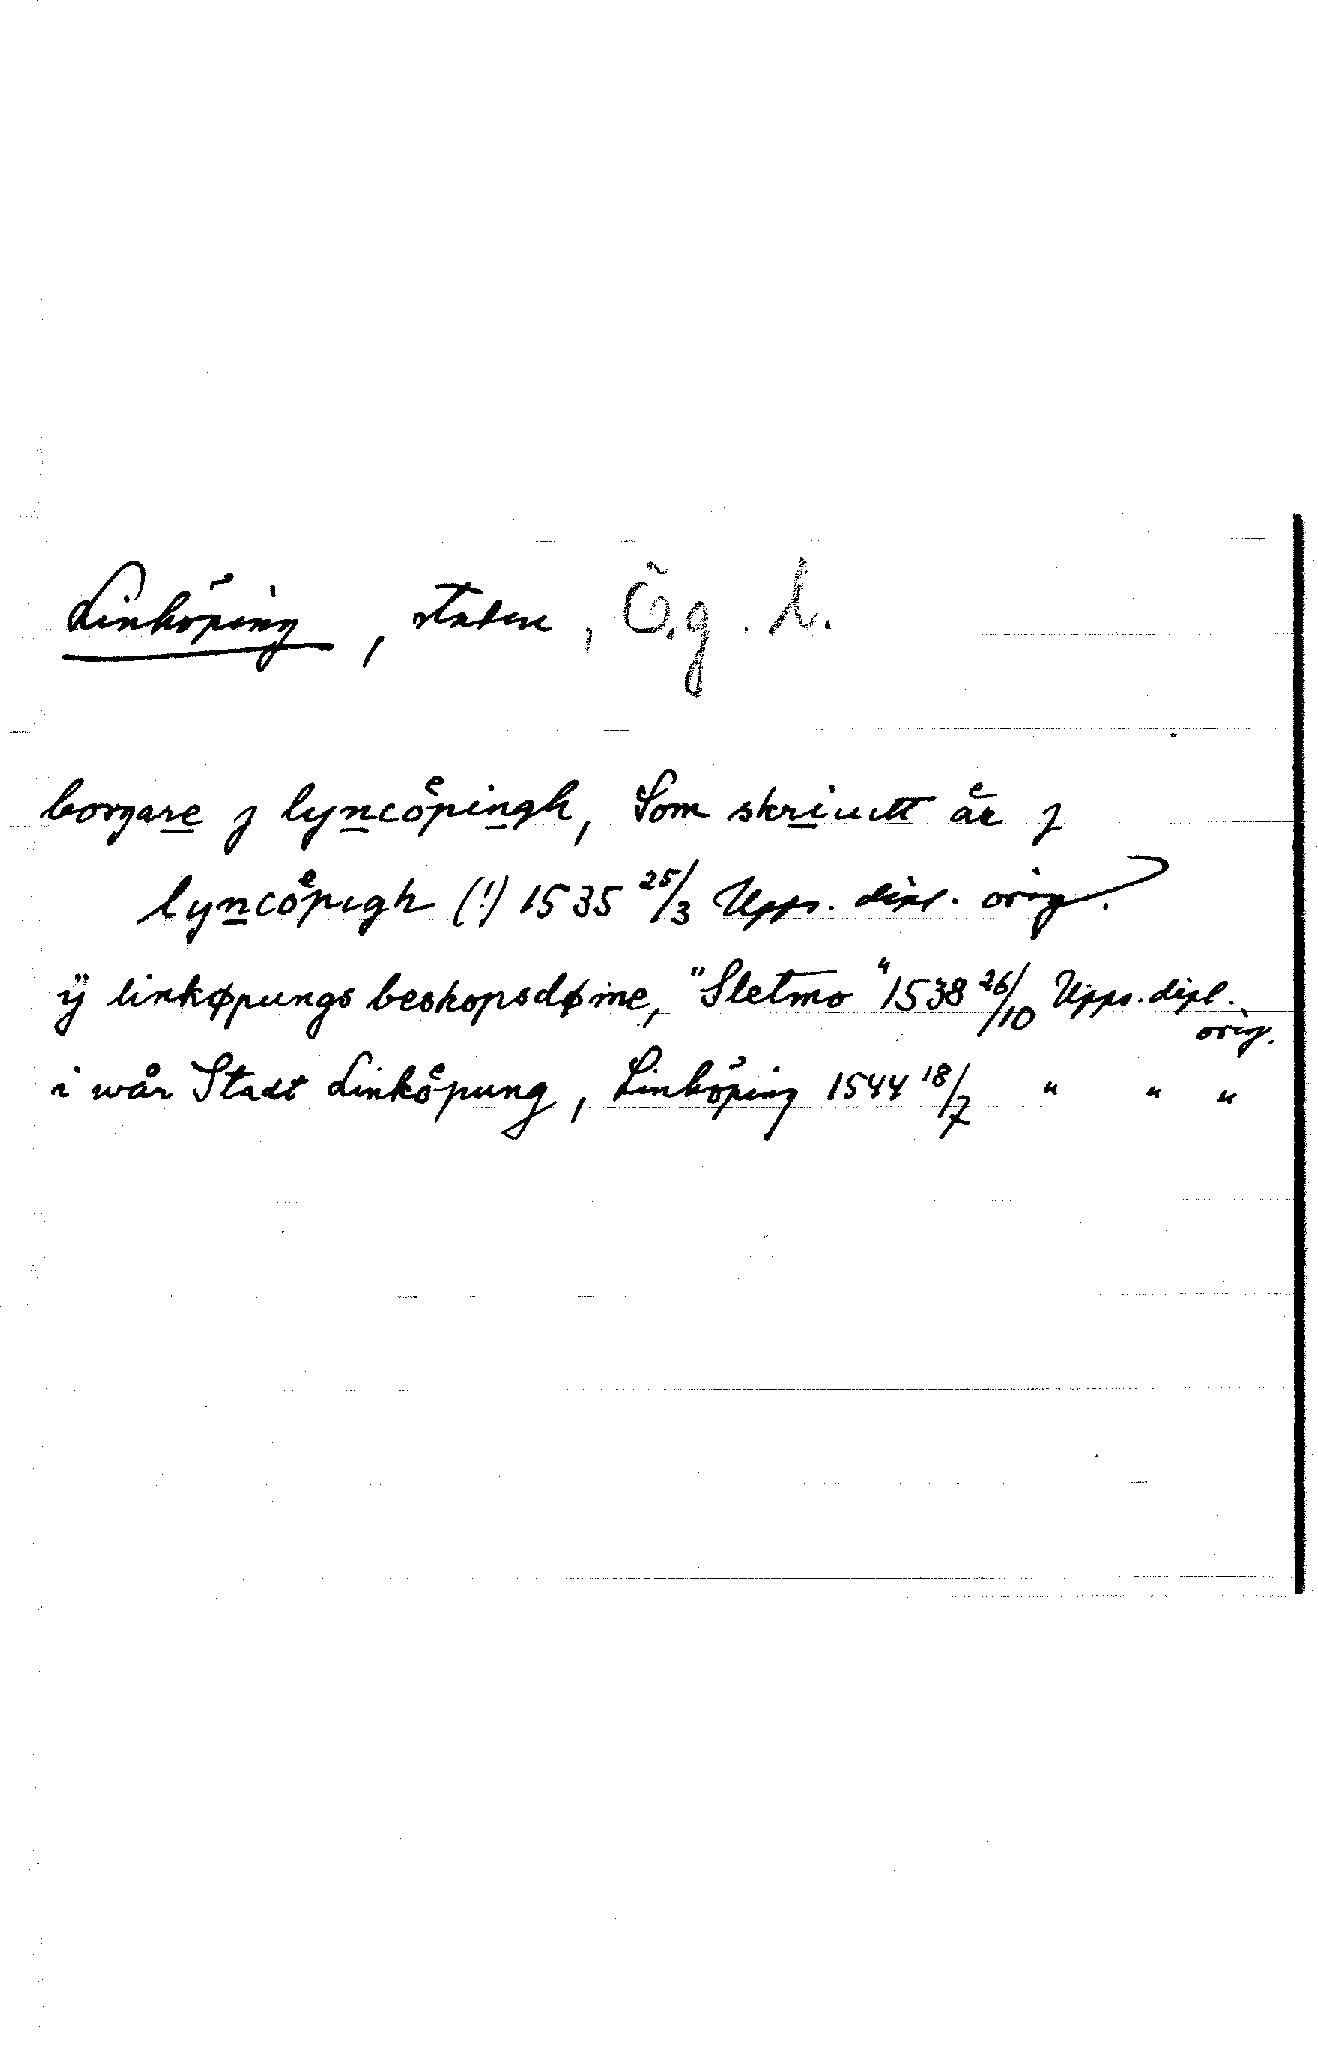 Linköping, staden, Ög. l.
borgare j lyncoͤpingh, Som skriuitt aͤr j
lyncoͤpigh (!) 1535 25/3 Upps. dipl. orig.
ÿ linkøpungs beskopsdøme, "Sletmo" 1538 26/10 Upps. dipl.
orig.
i wår Stadt Linkoͤpung, Linköping 1544 18/7 " " "